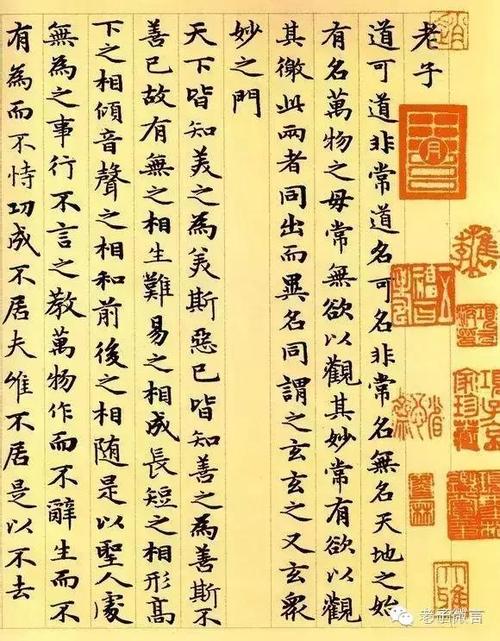 老子
道可道非常道名可名非常名無名天地之始
有名萬物之母常無欲以觀其妙常有欲以觀
其徼此兩者同出而異名同謂之玄玄之又玄衆
妙之門
天下皆知美之為美斯惡已皆知善之為善斯不
善已故有無之相生難易之相成長短之相形高
下之相傾音聲之相和前後之相随是以聖人處
無為之事行不言之教萬物作而不辭生而不
有為而不恃功成不居夫唯不居是以不去
項子京
家珍藏
老子微言